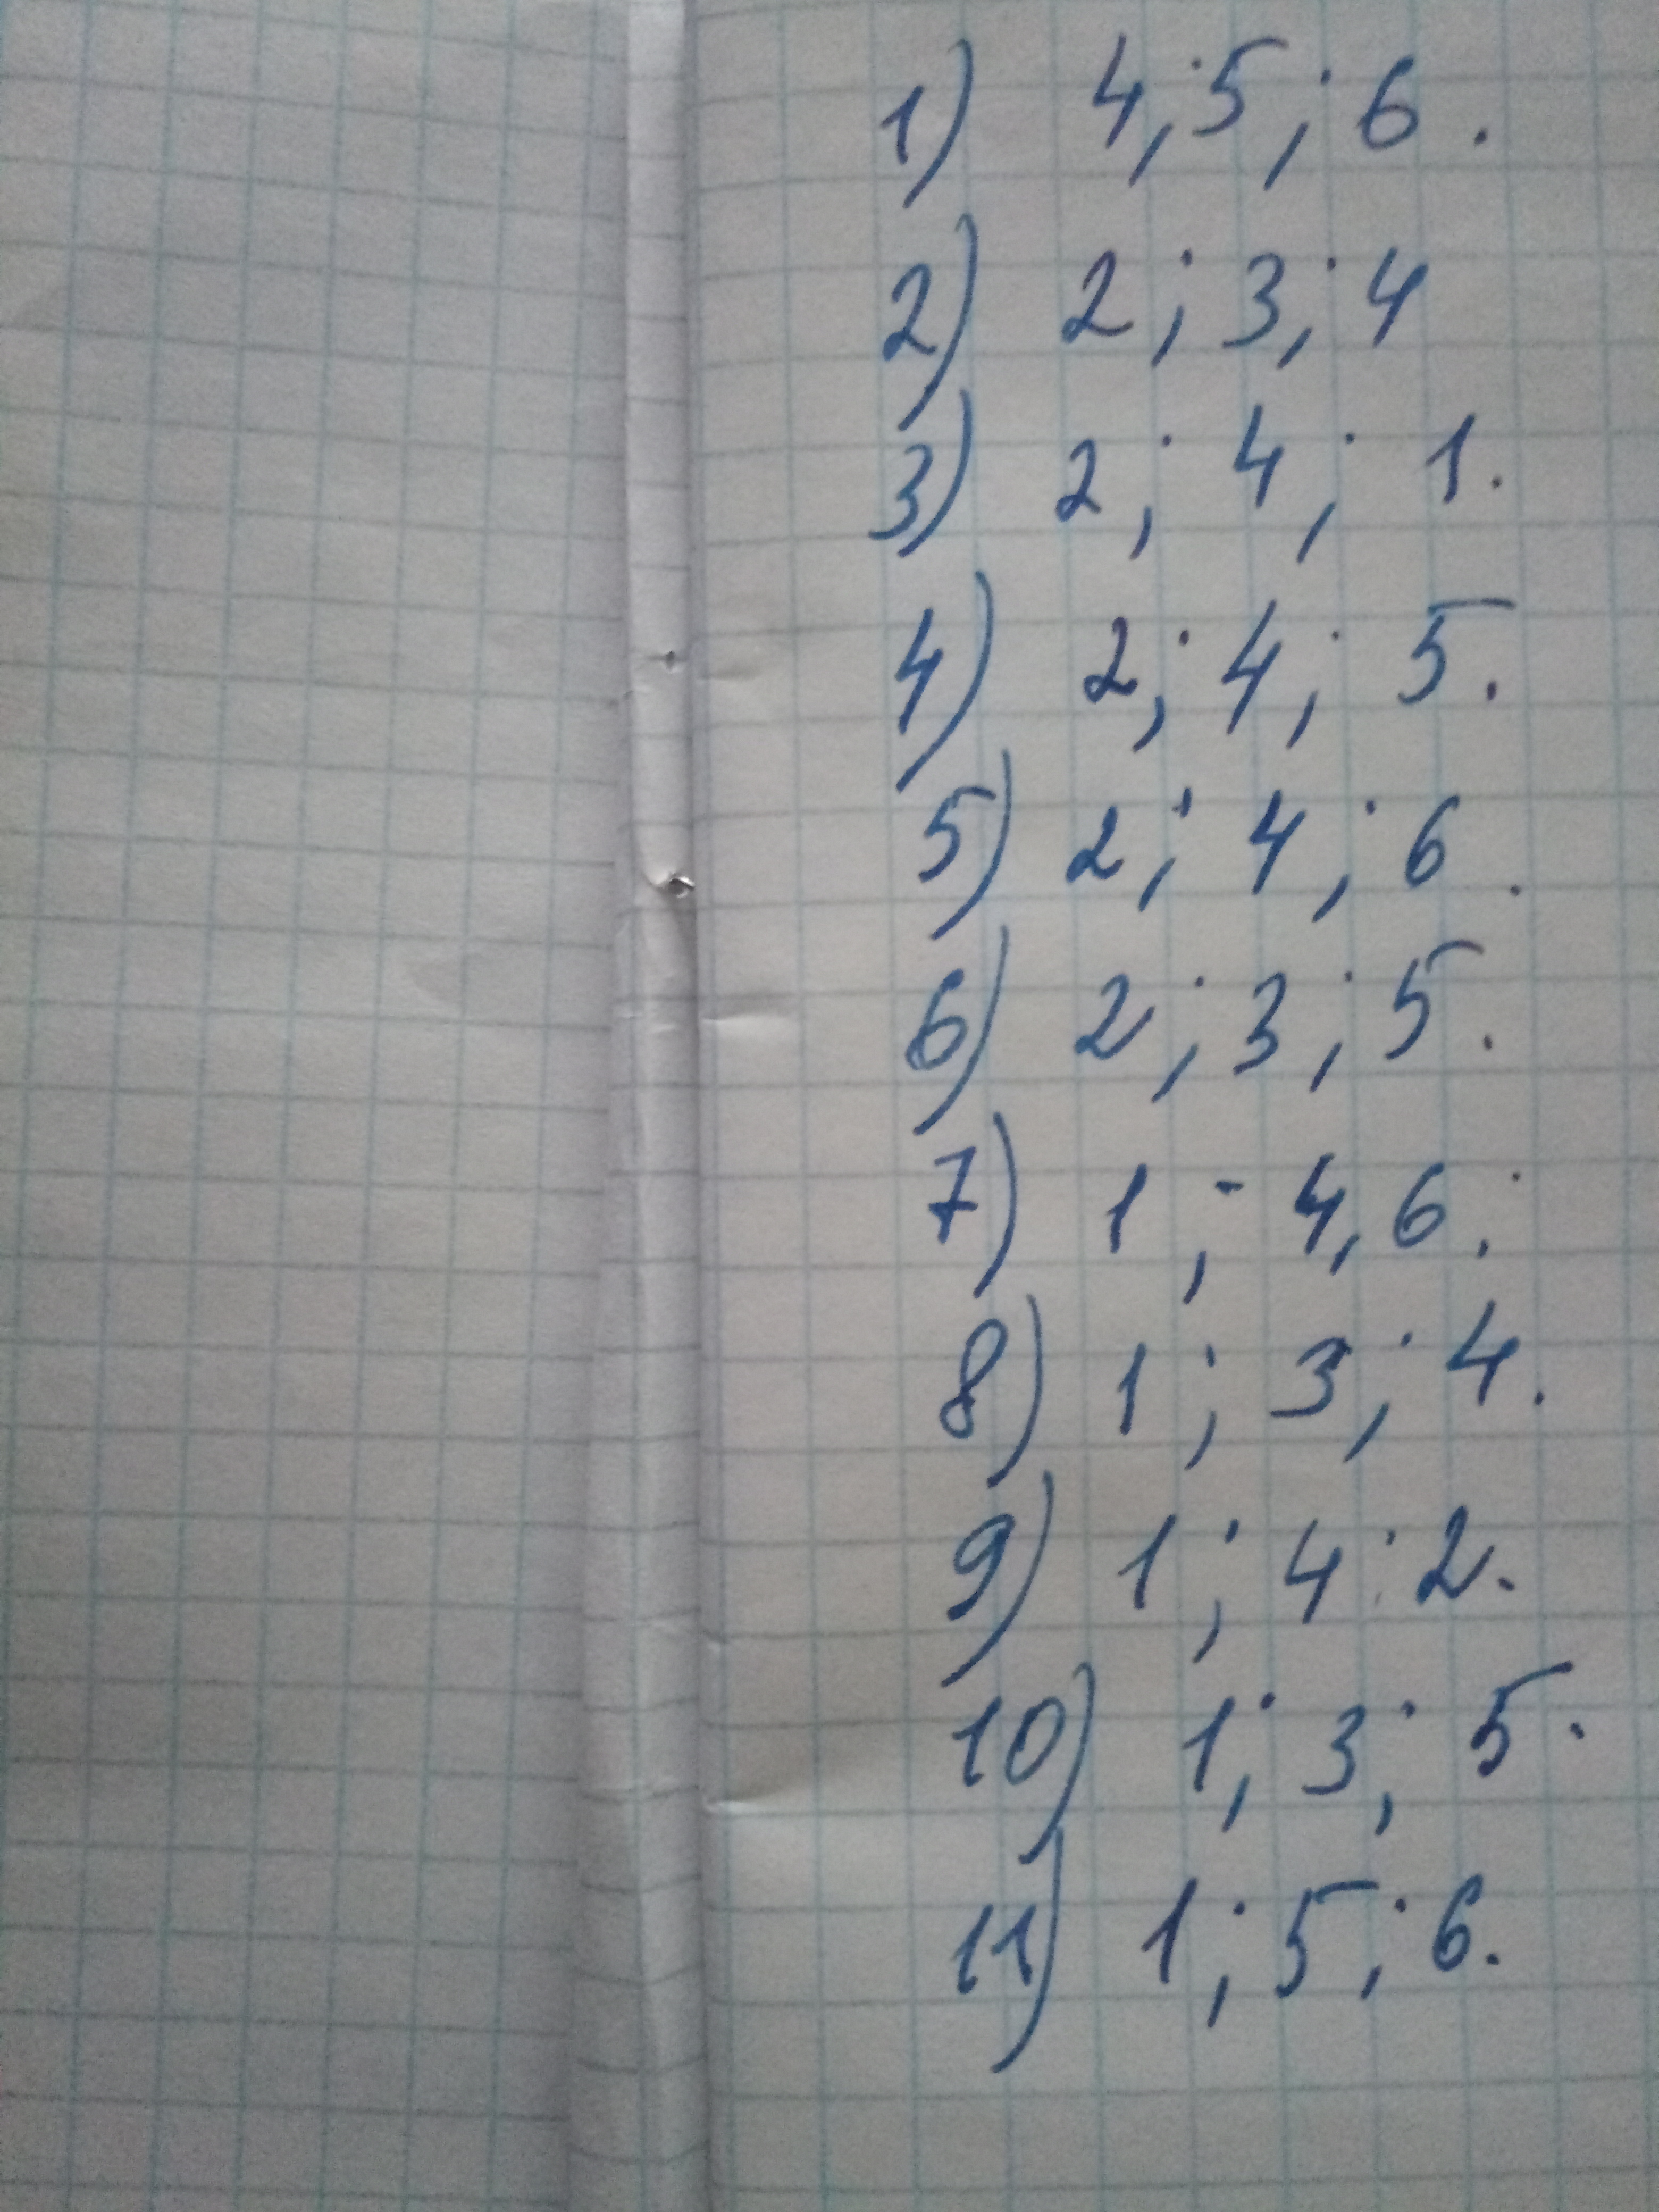 1) 4; 5; 6.
2) 2; 3; 4
3) 2; 4; 1.
4) 2; 4; 5.
5) 2; 4; 6.
6) 2; 3; 5.
7) 1; 4, 6;
8) 1; 3; 4.
9) 1; 4; 2.
10) 1; 3; 5.
11) 1; 5; 6.